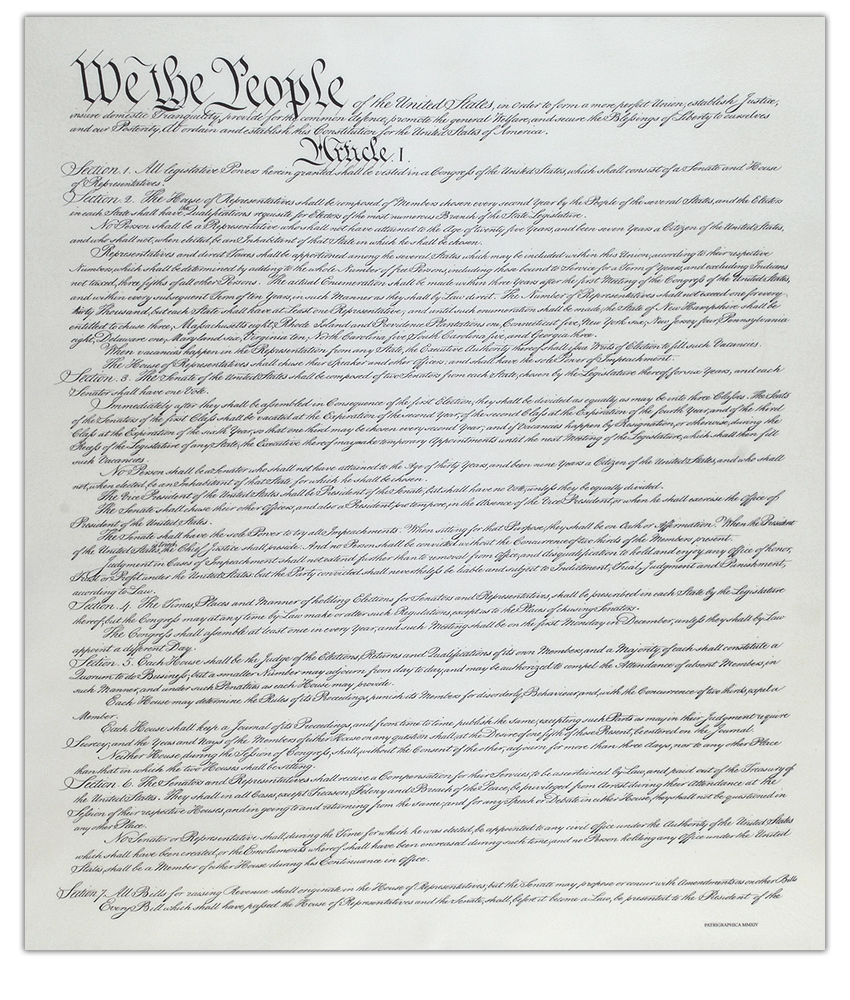 We the People of the United States, in Order to form a more perfect Union, establish Justice,
insure domestic Tranquility, provide for the common defence, promote the general Welfare, and secure the Blessings of Liberty to ourselves
and our Posterity, do ordain and establish this Constitution for the United States of America.
Article. I.
Section. 1. All legislative Powers herein granted shall be vested in a Congress of the United States, which shall consist of a Senate and House
of Representatives.
Section. 2. The House of Representatives shall be composed of Members chosen every second Year by the People of the several States, and the Electors
in each State shall have the Qualifications requisite for Electors of the most numerous Branch of the State Legislature.
No Person shall be a Representative who shall not have attained to the Age of twenty five Years, and been seven Years a Citizen of the United States,
and who shall not, when elected, be an Inhabitant of that State in which he shall be chosen.
Representatives and direct Taxes shall be apportioned among the several States which may be included within this Union, according to their respective
Numbers, which shall be determined by adding to the whole Number of free Persons, including those bound to Service for a Term of Years, and excluding Indians
not taxed, three fifths of all other Persons. The actual Enumeration shall be made within three Years after the first Meeting of the Congress of the United States,
and within every subsequent Term of ten Years, in such Manner as they shall by Law direct. The Number of Representatives shall not exceed one for every
thirty Thousand, but each State shall have at Least one Representative; and until such enumeration shall be made, the State of New Hampshire shall be
entitled to chuse three, Massachusetts eight, Rhode Island and Providence Plantations one, Connecticut five, New York six, New Jersey four, Pennsylvania
eight, Delaware one, Maryland six, Virginia ten, North Carolina five, South Carolina five, and Georgia three.
When vacancies happen in the Representation from any State, the Executive Authority thereof shall issue Writs of Election to fill such Vacancies.
The House of Representatives shall chuse their Speaker and other Officers; and shall have the sole Power of Impeachment.
Section. 3. The Senate of the United States shall be composed of two Senators from each State, chosen by the Legislature thereof, for six Years; and each
Senator shall have one Vote.
Immediately after they shall be assembled in Consequence of the first Election, they shall be divided as equally as may be into three Classes. The Seats
of the Senators of the first Class shall be vacated at the Expiration of the second Year, of the second Class at the Expiration of the fourth Year, and of the third
Class at the Expiration of the sixth Year, so that one third may be chosen every second Year; and if Vacancies happen by Resignation, or otherwise, during the
Recess of the Legislature of any State, the Executive thereof may make temporary Appointments until the next Meeting of the Legislature, which shall then fill
such Vacancies.
No Person shall be a Senator who shall not have attained to the Age of thirty Years, and been nine Years a Citizen of the United States, and who shall
not, when elected, be an Inhabitant of that State for which he shall be chosen.
The Vice President of the United States shall be President of the Senate, but shall have no Vote, unless they be equally divided.
The Senate shall chuse their other Officers, and also a President pro tempore, in the Absence of the Vice President, or when he shall exercise the Office of
President of the United States.
The Senate shall have the sole Power to try all Impeachments. When sitting for that Purpose, they shall be on Oath or Affirmation. When the President
of the United States is tried, the Chief Justice shall preside: And no Person shall be convicted without the Concurrence of two thirds of the Members present.
Judgment in Cases of Impeachment shall not extend further than to removal from Office, and disqualification to hold and enjoy any Office of honor,
Trust or Profit under the United States: but the Party convicted shall nevertheless be liable and subject to Indictment, Trial, Judgment and Punishment,
according to Law.
Section. 4. The Times, Places and Manner of holding Elections for Senators and Representatives, shall be prescribed in each State by the Legislature
thereof; but the Congress may at any time by Law make or alter such Regulations, except as to the Places of chusing Senators.
The Congress shall assemble at least once in every Year, and such Meeting shall be on the first Monday in December, unless they shall by Law
appoint a different Day.
Section. 5. Each House shall be the Judge of the Elections, Returns and Qualifications of its own Members, and a Majority of each shall constitute a
Quorum to do Business; but a smaller Number may adjourn from day to day, and may be authorized to compel the Attendance of absent Members, in
such Manner, and under such Penalties as each House may provide.
Each House may determine the Rules of its Proceedings, punish its Members for disorderly Behaviour, and, with the Concurrence of two thirds, expel a
Member.
Each House shall keep a Journal of its Proceedings, and from time to time publish the same, excepting such Parts as may in their Judgment require
Secrecy; and the Yeas and Nays of the Members of either House on any question shall, at the Desire of one fifth of those Present, be entered on the Journal.
Neither House, during the Session of Congress, shall, without the Consent of the other, adjourn for more than three days, nor to any other Place
than that in which the two Houses shall be sitting.
Section. 6. The Senators and Representatives shall receive a Compensation for their Services, to be ascertained by Law, and paid out of the Treasury of
the United States. They shall in all Cases, except Treason, Felony and Breach of the Peace, be privileged from Arrest during their Attendance at the
Session of their respective Houses, and in going to and returning from the same; and for any Speech or Debate in either House, they shall not be questioned in
any other Place.
No Senator or Representative shall, during the Time for which he was elected, be appointed to any civil Office under the Authority of the United States
which shall have been created, or the Emoluments whereof shall have been encreased during such time; and no Person holding any Office under the United
States, shall be a Member of either House during his Continuance in Office.
Section 7. All Bills for raising Revenue shall originate in the House of Representatives; but the Senate may propose or concur with Amendments as on other Bills
Every Bill which shall have passed the House of Representatives and the Senate, shall, before it become a Law, be presented to the President of the
PATRIGRAPHICA MMXIV